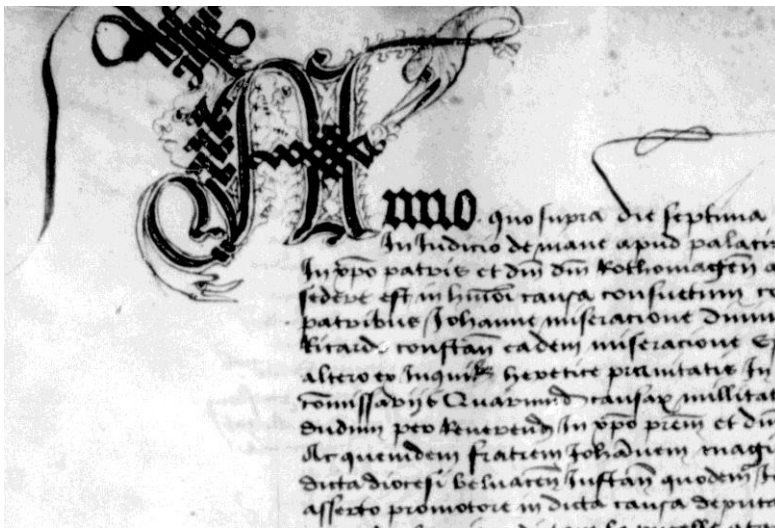 Anno quo supra die septima
In Iudicio de mane apud palaciu
In xpo patris et dni dni Rothomagen a
sedere est in hmoi causa consuetum co
patribus Iohanne miseracione Diuin
Ricardo constan eadem miseracione Ep
altero ex Inquis heretice prauitatis In
comissarijs Quarund causar nullitat
dudum per Reuerend In xpo prem et dn
Ac quemdem fratrem Iohannem magi
dicta diocesi beluacen Instan quodem Io
asserto promotore in dicta causa deputa